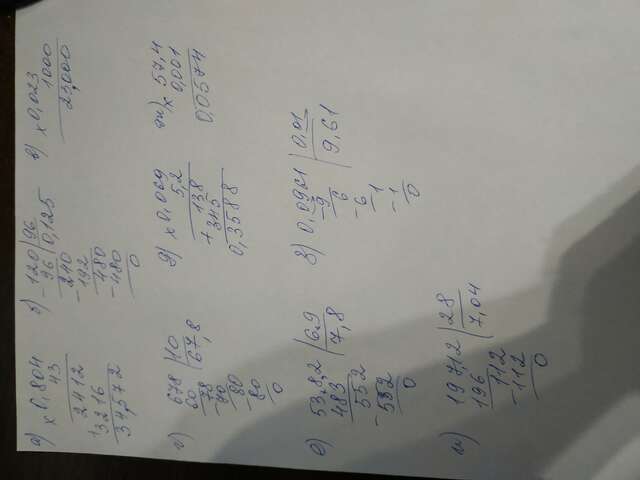 а) х 0,804
43
2412
13216
34,572
б) - 120 | 96
96 | 0,125
240
- 192
480
- 480
0
в) х 0,023
1000
23,000
г) 678 | 10
60 | 67,8
78
- 70
80
- 80
0
д) х 0,069
5,2
138
+ 345
0,3588
ж) х 57,4
0,001
0,0574
е) 53,8,2 | 6,9
483 | 7,8
552
- 552
0
з) 0,0961 | 0,01
- 9 | 9,61
6
- 6
1
- 1
0
и) 19,712 | 28
196 | 7,04
112
- 112
0